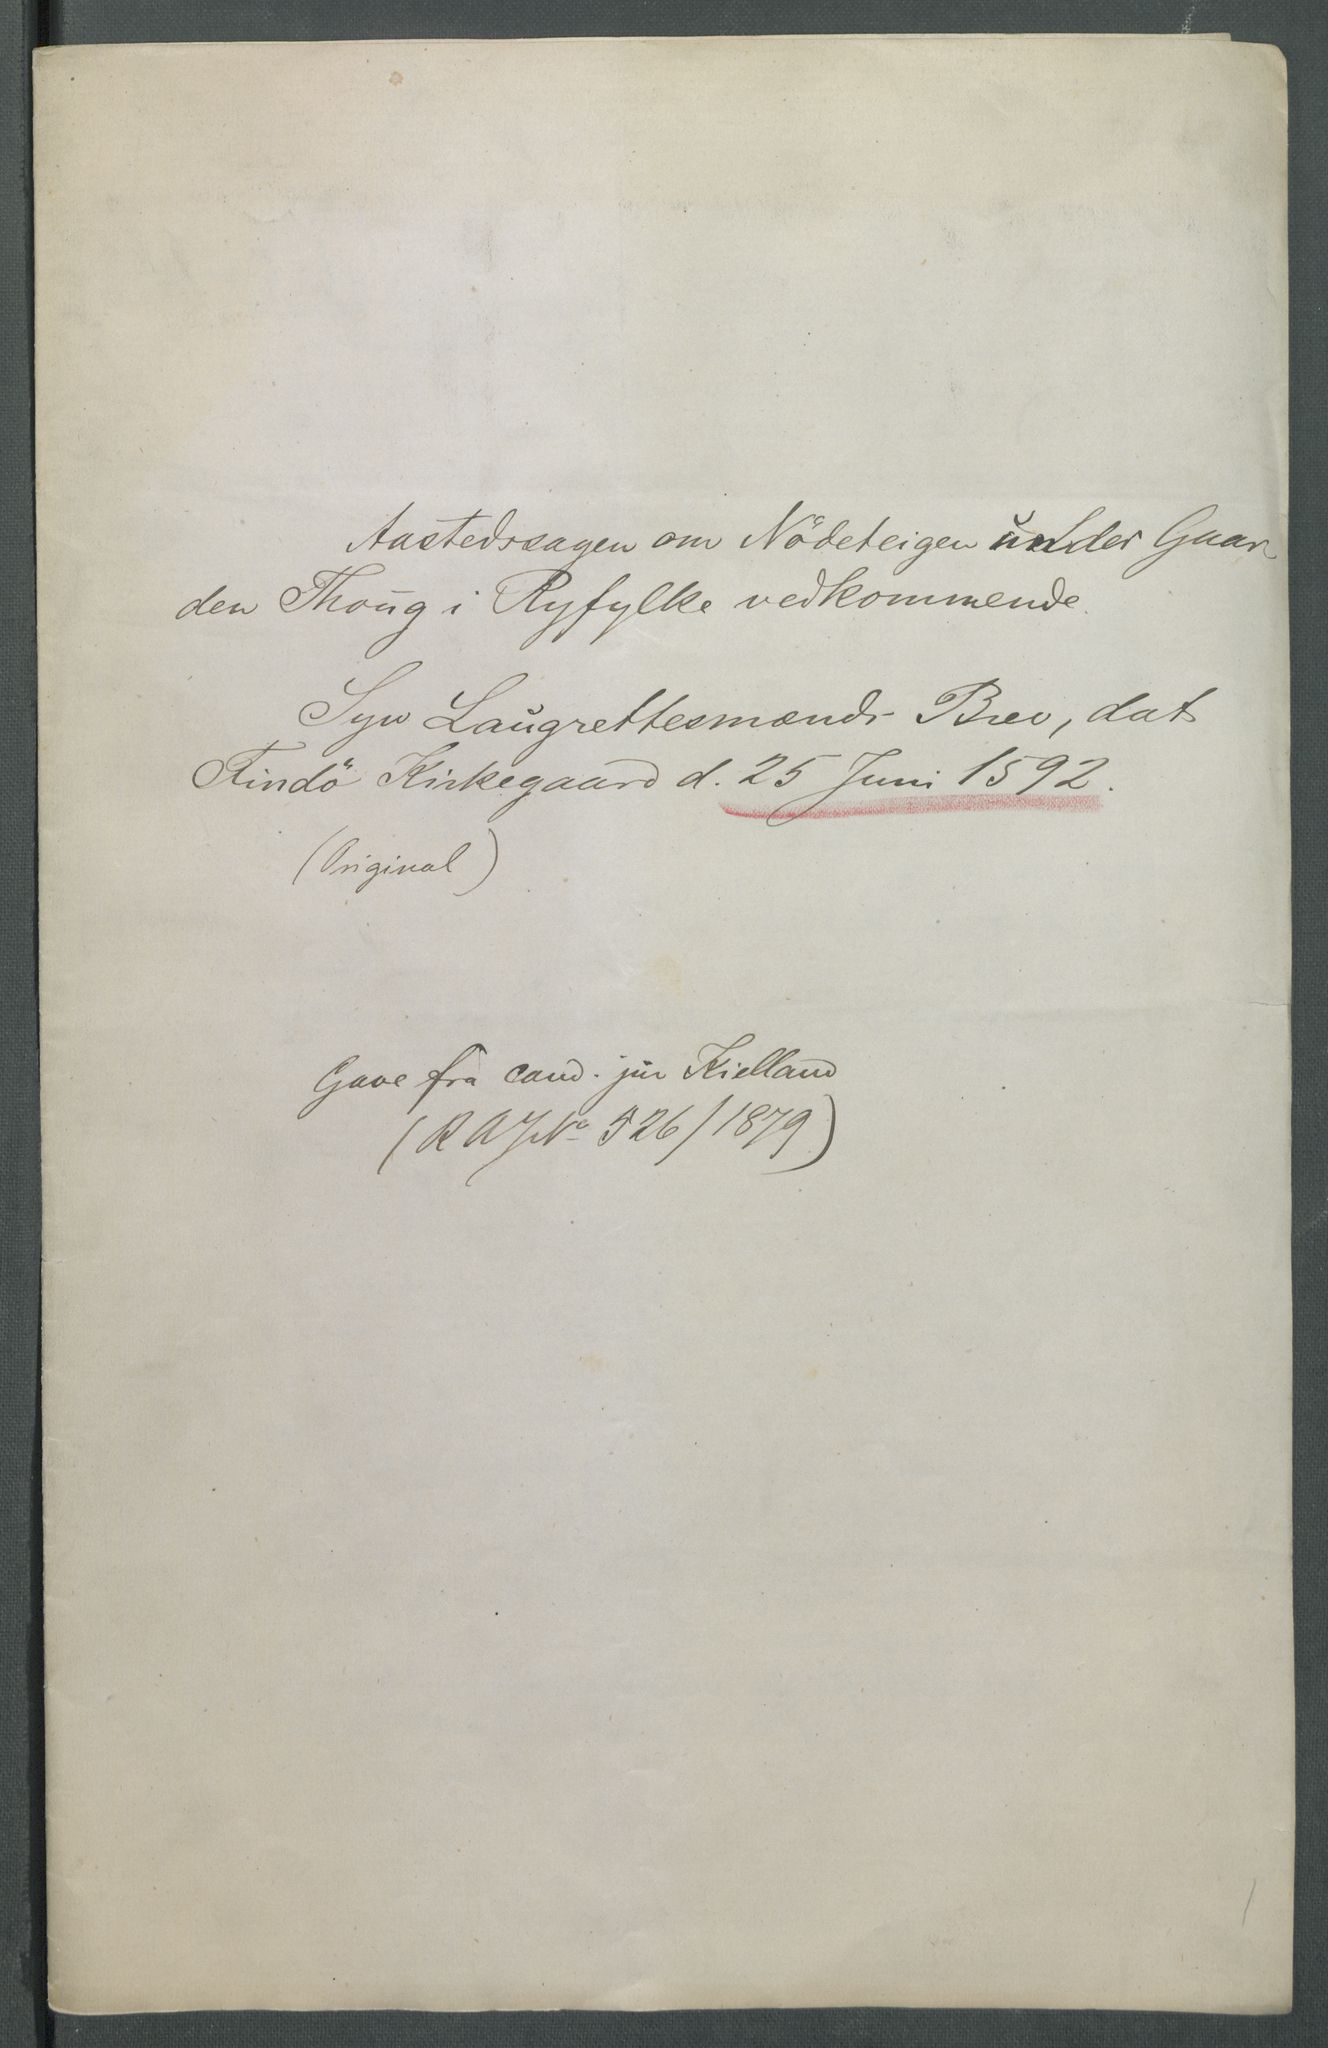 Aastedssagen om Nödeteigen under Gaar
den Thoug i Ryfylke vedkommende.
Syv Laugrettesmænds Brev, dat
Findö Kirkegaard d. 25 Juni 1592.
(Original)
Gave fra cand. jur Kielland
(R A J No 526/1879)
1